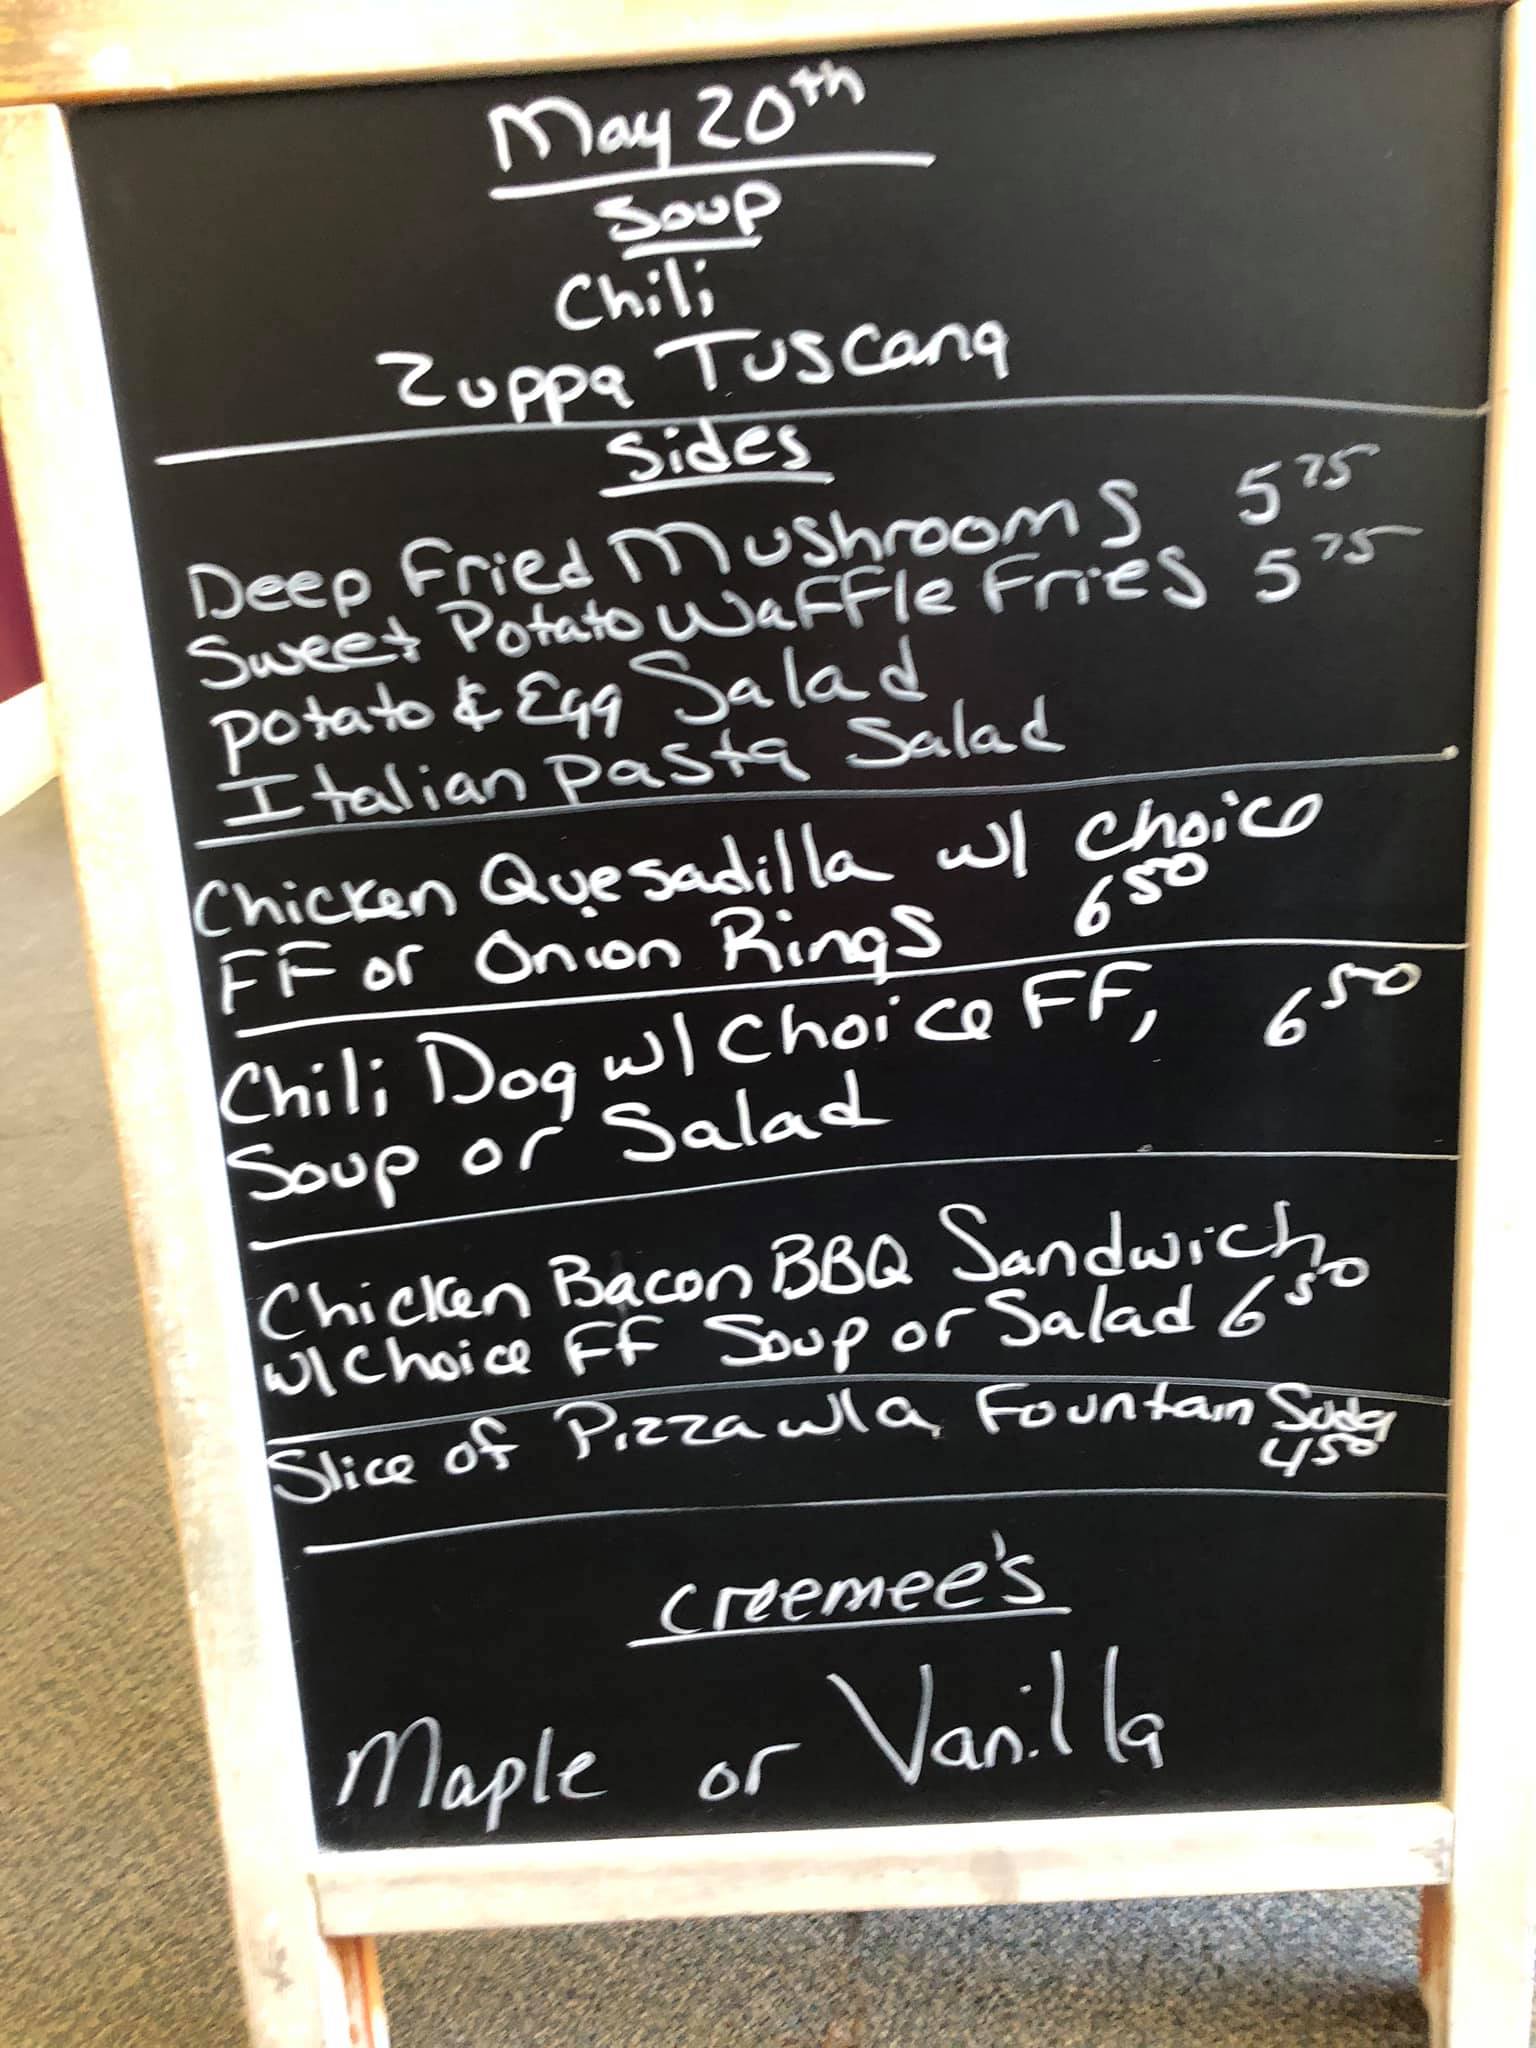 May 20th
Soup
Chili
Zuppa Tuscana
Sides
Deep Fried Mushrooms 5 75
Sweet Potato Waffle Fries 5 75
Potato & Egg Salad
Italian Pasta Salad
Chicken Quesadilla w/ Choice
FF or Onion Rings 6 50
Chili Dog w/ Choice FF, 6 50
Soup or Salad
Chicken Bacon BBQ Sandwich
w/ Choice FF Soup or Salad 6 50
Slice of Pizza w/ a Fountain Soda
4 50
Creemee's
Maple or Vanilla